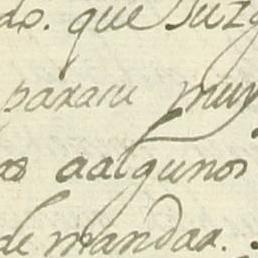 do. que Juzg
pararu muy
os aalgunos
de mandar.